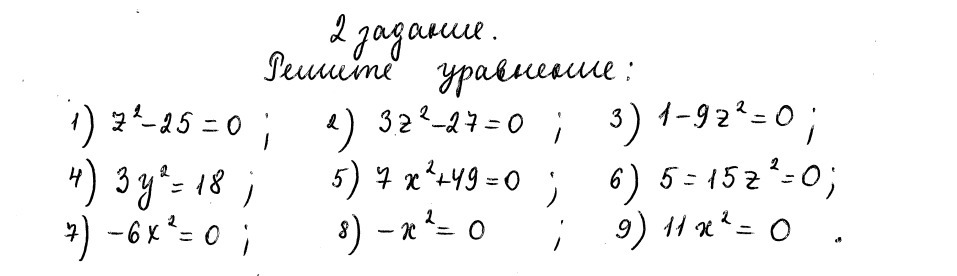 2 задание.
Решите уравнение:
1) z²-25=0 ; 2) 3z²-27=0 ; 3) 1-9z²=0 ;
4) 3y²=18 ; 5) 7x²+49=0 ; 6) 5=15z²=0;
7) -6x²=0 ; 8) -x²=0 ; 9) 11x²=0 .